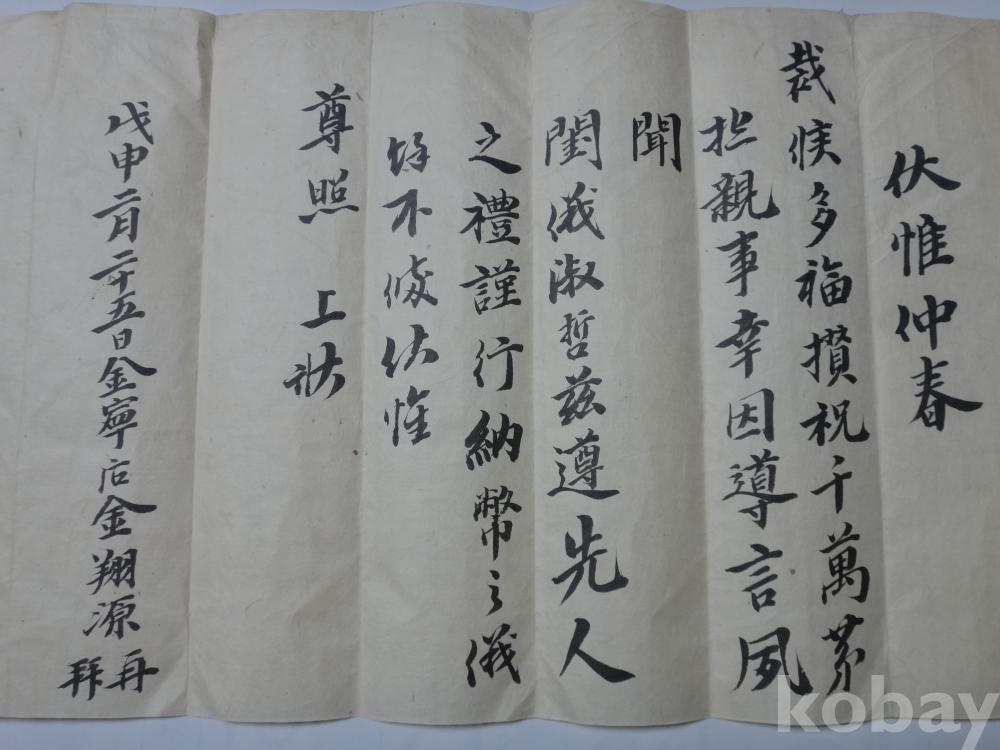 伏惟仲春
裁候多福攅祝千萬苐
親事幸因導言夙
聞
閨儀淑哲茲遵先人
之禮謹行納幣之儀
餘不備伏惟
尊照 上狀
戊申二月二十五日金寧后金翔源再拜
kobay